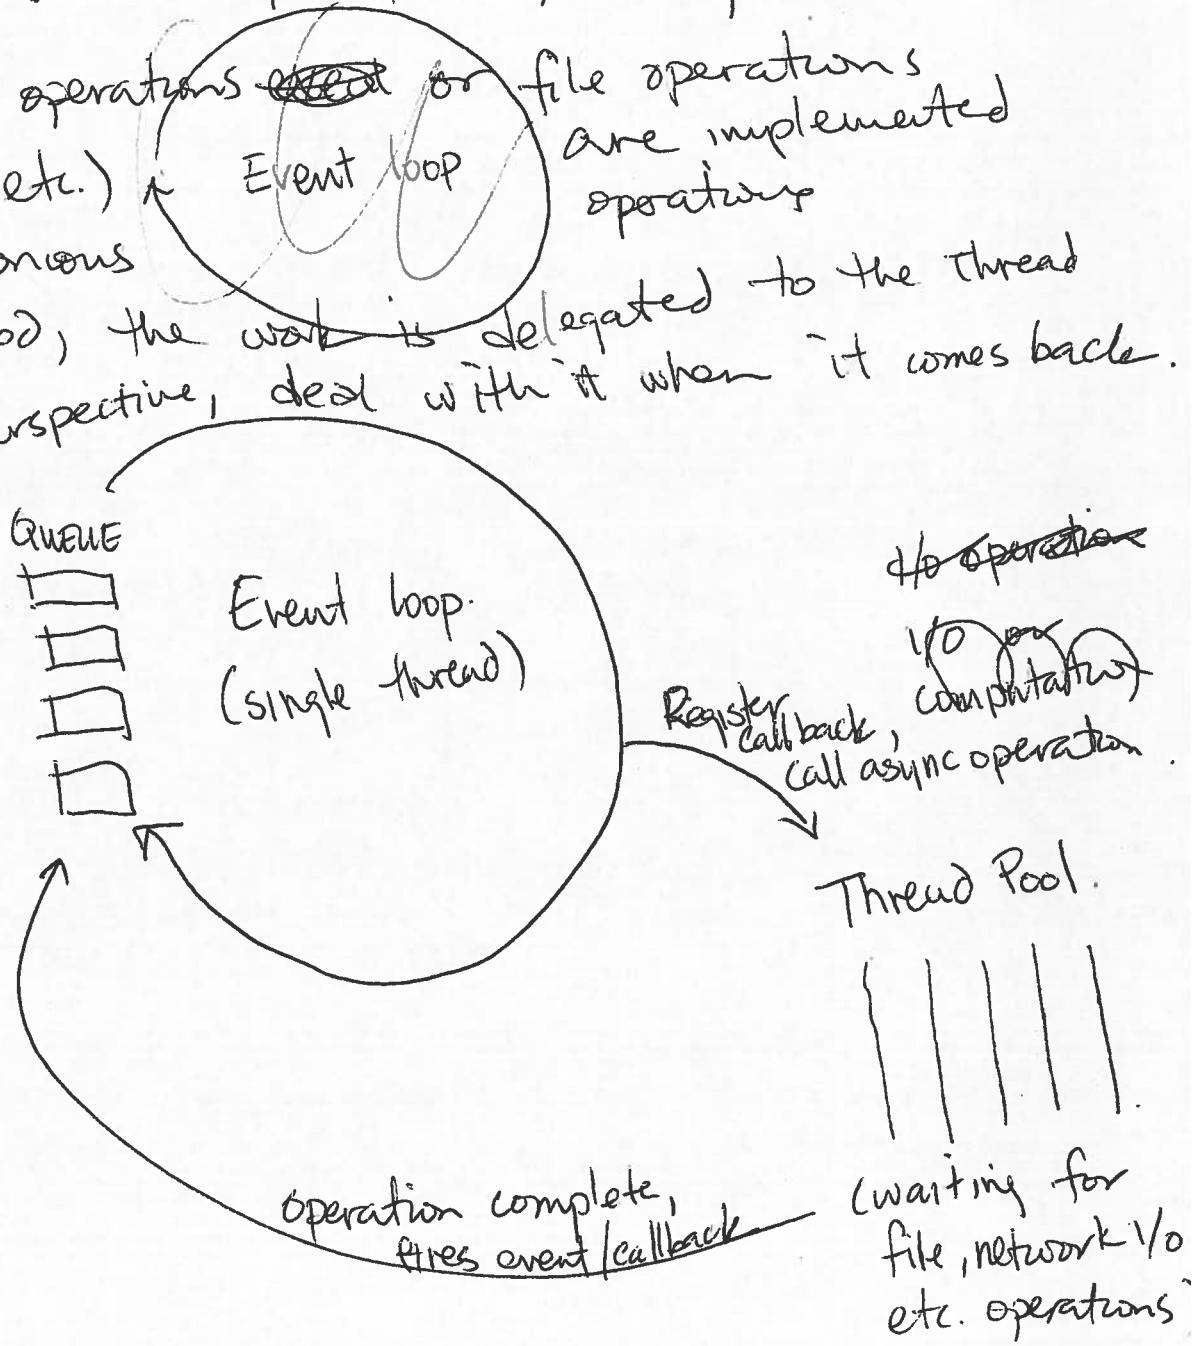 operations or file operations
etc.) Event loop are implemented
operations
onious
od, the work is delegated to the thread
urspective, deal with it when it comes back.
QUEUE
Event loop.
(single thread)
I/O operation
I/O or
computation
Register
callback,
call async operation.
Thread Pool.
(waiting for
file, network I/O
etc. operations
operation complete,
fires event/callback